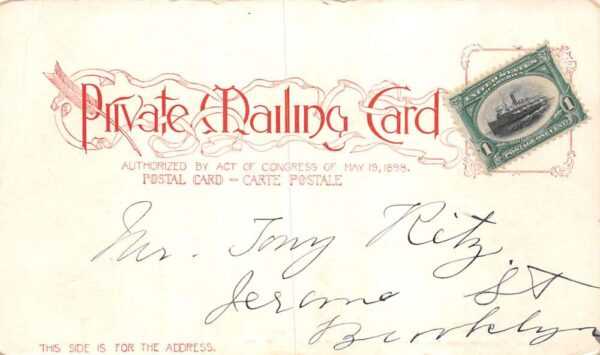 Private Mailing Card
AUTHORIZED BY ACT OF CONGRESS OF MAY 19, 1898.
POSTAL CARD – CARTE POSTALE
UNITED STATES
OF AMERICA
1 1
POSTAGE ONE CENT
Mr. Tony Ritz
Jerome St
Brooklyn
THIS SIDE IS FOR THE ADDRESS.